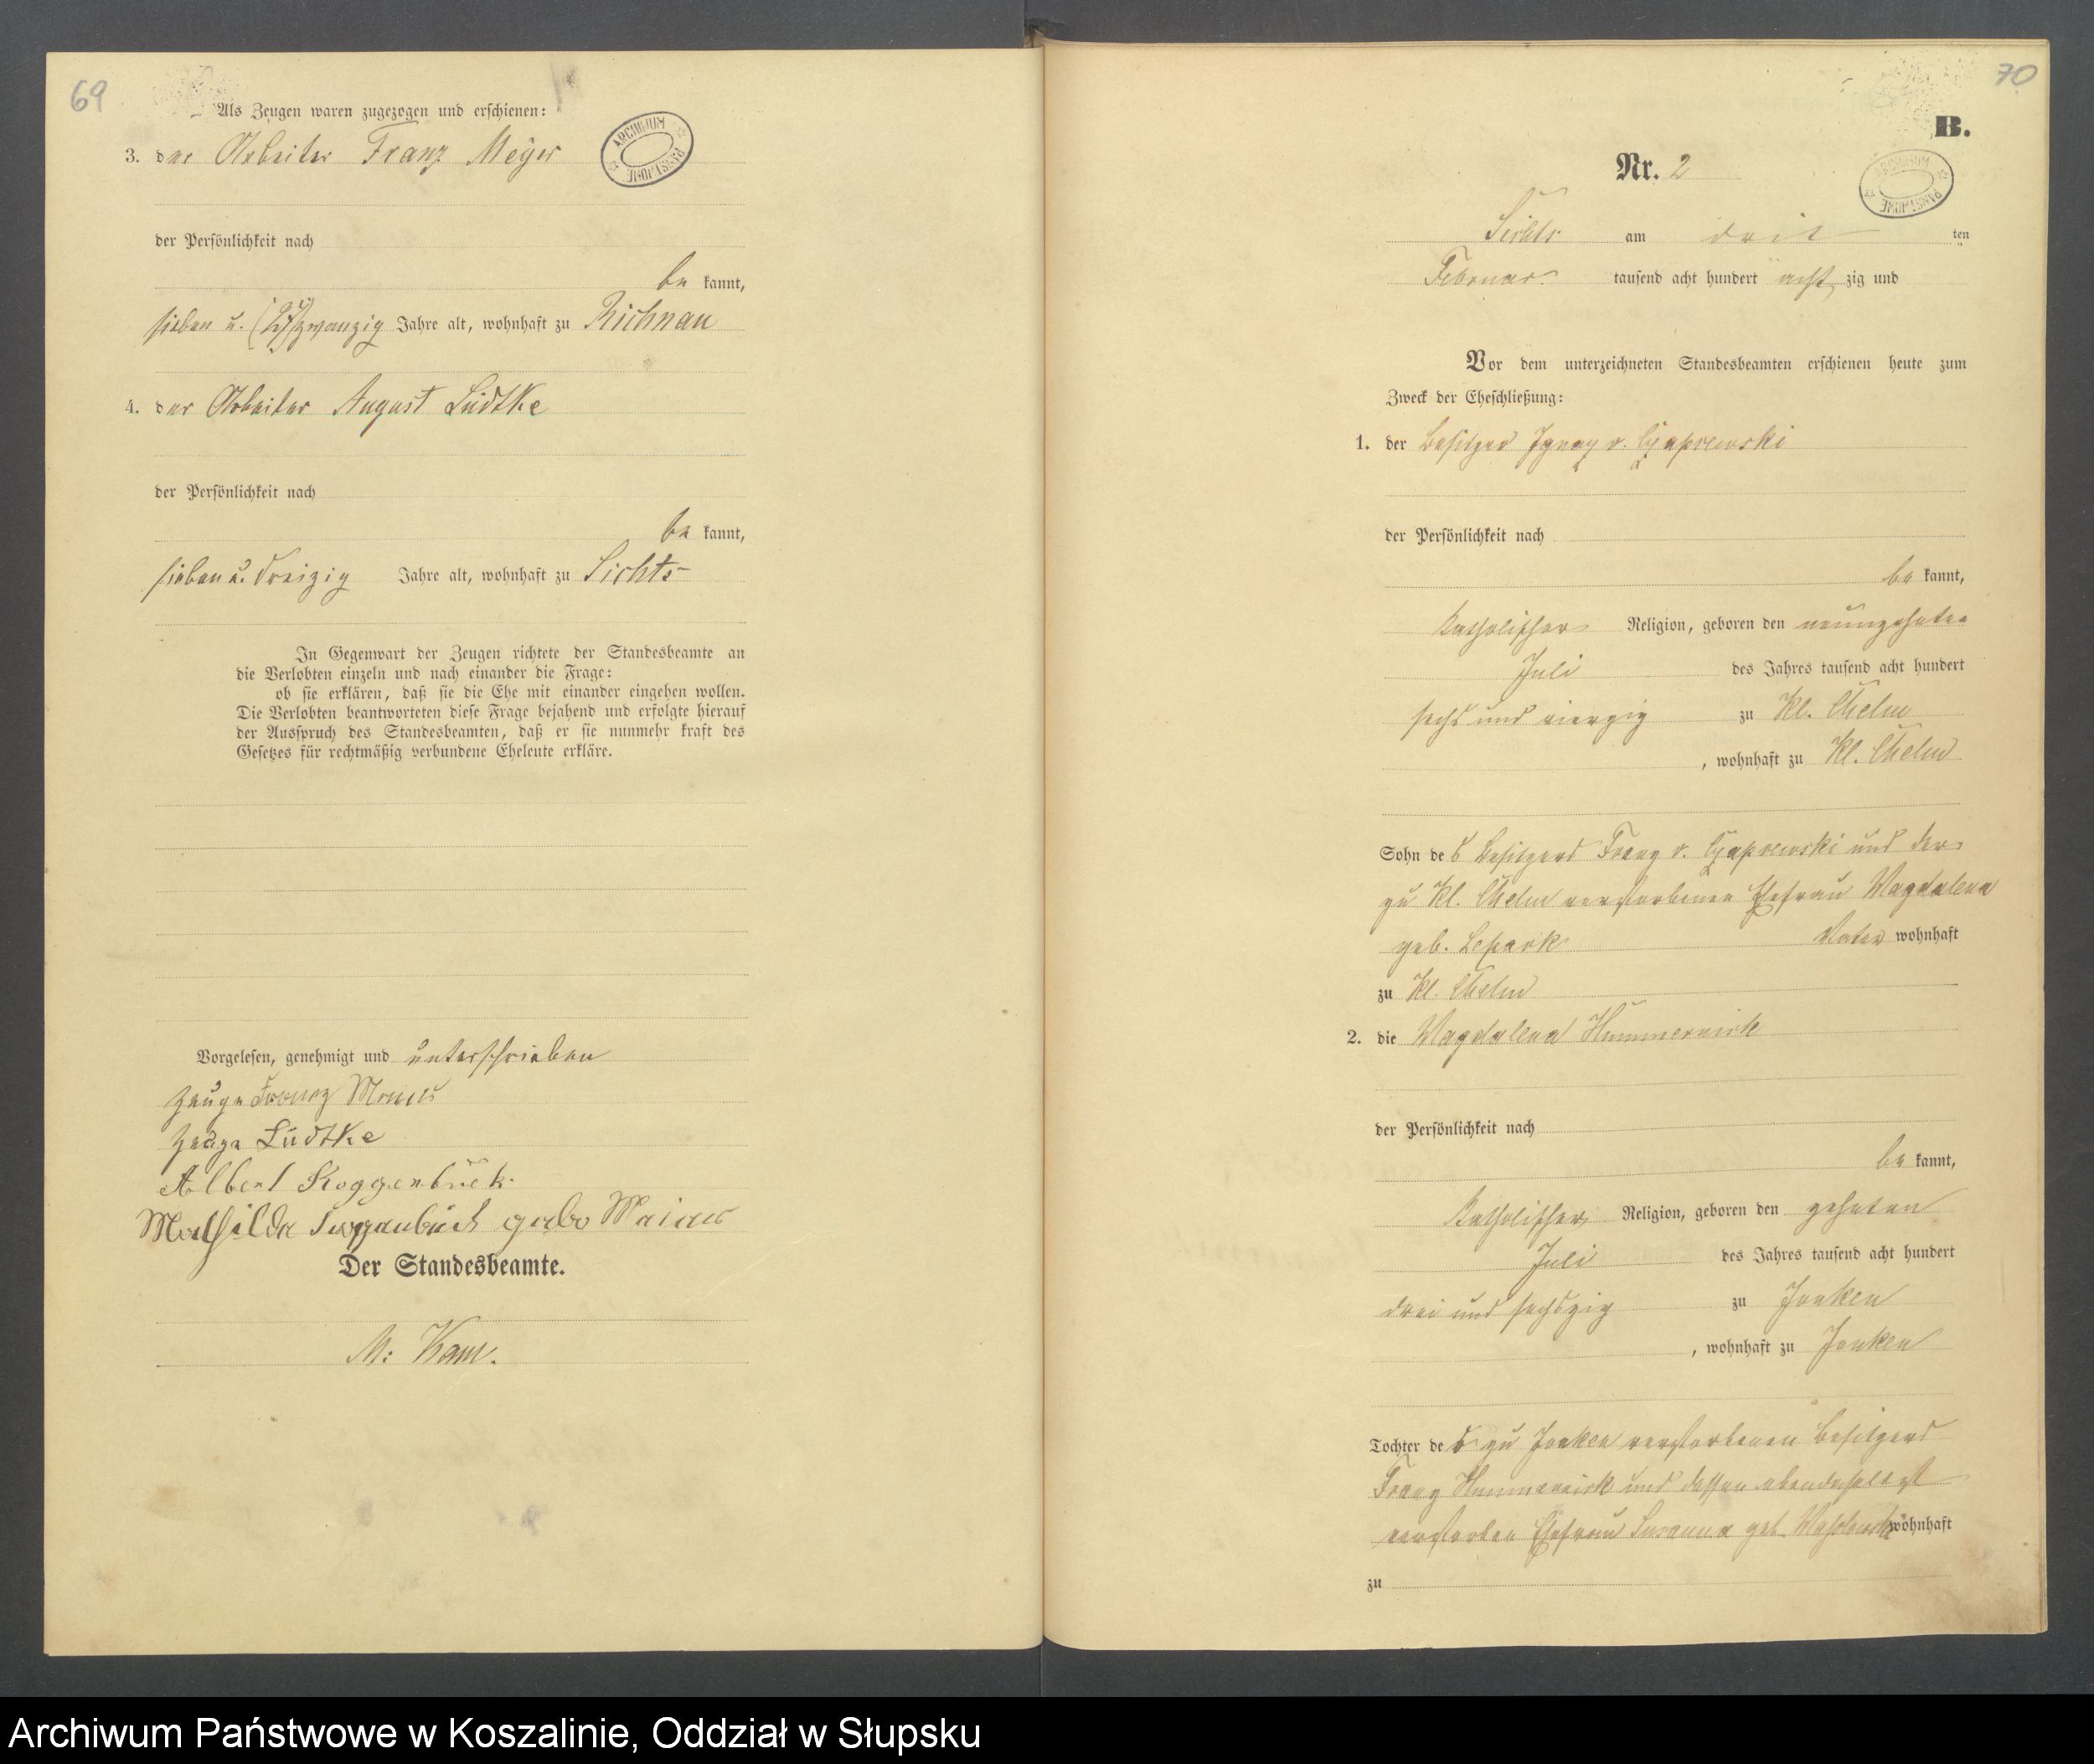 69
Als Zeugen waren zugezogen und erschienen:
ARCHIWUM PAŃSTWOWE
3. der Arbeiter Franz Meyer
der Persönlichkeit nach
be kannt,
sieben u. (27) zwanzig Jahre alt, wohnhaft zu Richnau
4. der Arbeiter August Lüdtke
der Persönlichkeit nach
be kannt,
sieben u. dreizig Jahre alt, wohnhaft zu Sichts
In Gegenwart der Zeugen richtete der Standesbeamte an
die Verlobten einzeln und nach einander die Frage:
ob sie erklären, daß sie die Ehe mit einander eingehen wollen.
Die Verlobten beantworteten diese Frage bejahend und erfolgte hierauf
der Ausspruch des Standesbeamten, daß er sie nunmehr kraft des
Gesetzes für rechtmäßig verbundene Eheleute erkläre.
Vorgelesen, genehmigt und unterschrieben
Zeuge Franz
Zeuge Lüdtke
Albert Roggenbuck
Mathilde
Der Standesbeamte.
70
B.
Nr. 2
ARCHIWUM PAŃSTWOWE
Sichts am drit ten
Februar tausend acht hundert acht zig und
Vor dem unterzeichneten Standesbeamten erschienen heute zum
Zweck der Eheschließung:
1. der Besitzer Ignaz v. Czapiewski
der Persönlichkeit nach
be kannt,
katholischer Religion, geboren den neunzehnten
Juli des Jahres tausend acht hundert
sechs und vierzig zu Kl. Chelm
, wohnhaft zu Kl. Chelm
Sohn des Besitzers Franz v. Czapiewski und der
zu Kl. Chelm verstorbenen Ehefrau Magdalena
geb. Vater wohnhaft
zu Kl. Chelm
2. die Magdalena
der Persönlichkeit nach
be kannt,
katholischer Religion, geboren den zehnten
Juli des Jahres tausend acht hundert
drei und sechszig zu Jonken
, wohnhaft zu Jonken
Tochter des zu Jonken verstorbenen Besitzers
Franz und dessen ebendaselbst
verstorben Ehefrau Susanna geb. wohnhaft
zu
Archiwum Państwowe w Koszalinie, Oddział w Słupsku